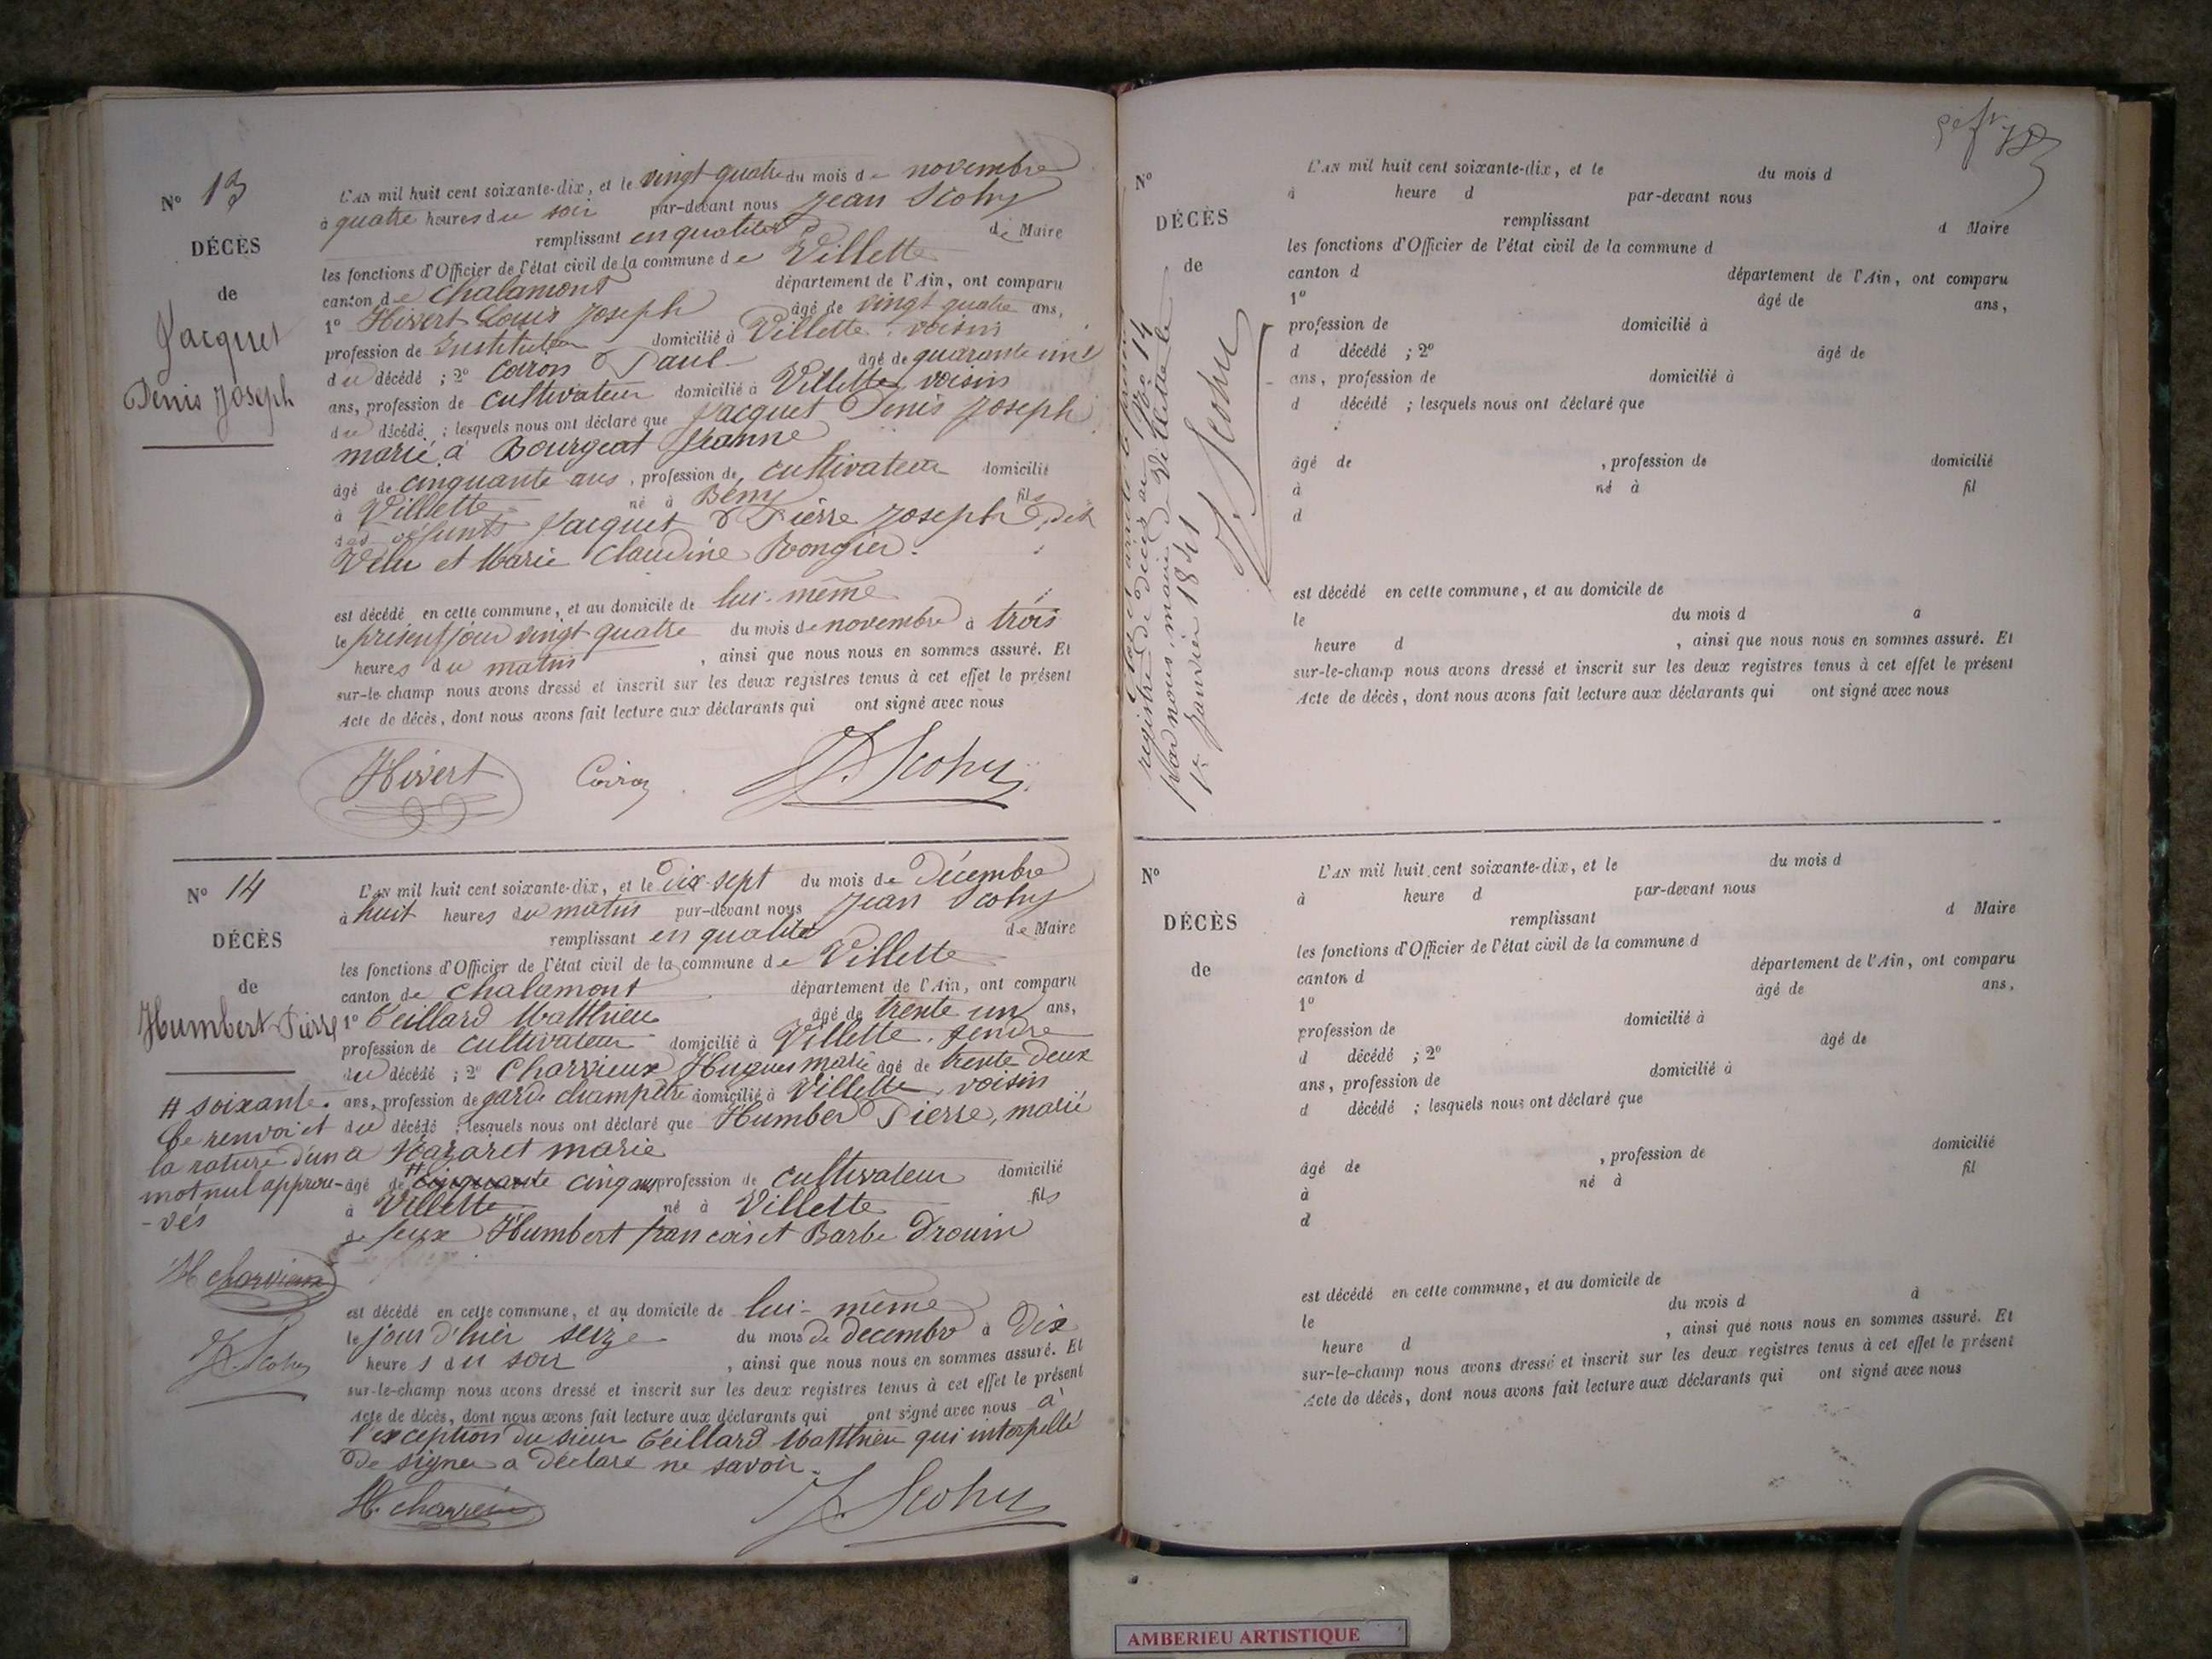 N° 13
DÉCÈS
de
Jacquet
Denis Joseph
L'AN mil huit cent soixante-dix, et le vingt quatre du mois de novembre
à quatre heures du soir par-devant nous Jean Scohy
remplissant en qualité de Maire
les fonctions d'Officier de l'état civil de la commune de Villette
canton de Chalamont département de l'Ain, ont comparu
1° Hivert Louis Joseph âgé de vingt quatre ans,
profession de Instituteur domicilié à Villette voisin
du décédé ; 2° Coiron Paul âgé de quarante un
ans, profession de cultivateur domicilié à Villette, voisin
du décédé ; lesquels nous ont déclaré que Jacquet Denis Joseph
marié à Bourgeat Jeanne
âgé de cinquante ans, profession de cultivateur domicilié
à Villette né à Bény fils
des défunts Jacquet Pierre Joseph dit
Vélu et Marie Claudine Rongier.
est décédé en cette commune, et au domicile de lui-même
le présent jour vingt quatre du mois de novembre à trois
heures du matin , ainsi que nous nous en sommes assuré. Et
sur-le-champ nous avons dressé et inscrit sur les deux registres tenus à cet effet le présent
Acte de décès, dont nous avons fait lecture aux déclarants qui ont signé avec nous
Hivert Coiron J. Scohy
N° 14
DÉCÈS
de
Humbert Pierre
# soixante.
Le renvoi et
la rature d'un
mot nul approu-
-vés
H charvieux
J. Scohy
L'AN mil huit cent soixante-dix, et le dix-sept du mois de Décembre
à huit heures du matin par-devant nous Jean Scohy
remplissant en qualité de Maire
les fonctions d'Officier de l'état civil de la commune de Villette
canton de Chalamont département de l'Ain, ont comparu
1° Teillard Matthieu âgé de trente un ans,
profession de cultivateur domicilié à Villette, gendre
du décédé ; 2° Charvieux Hugues marie âgé de trente deux
ans, profession de garde champêtre domicilié à Villette, voisin
du décédé ; lesquels nous ont déclaré que Humber Pierre, marié
a Nazaret marie
âgé de # cinquante cinq ans profession de cultivateur domicilié
à Villette né à Villette fils
de feux Humbert francois et Barbe Drouin
est décédé en cette commune, et au domicile de lui-même
le jour d'hier seize du mois de decembre à Dix
heures du soir , ainsi que nous nous en sommes assuré. Et
sur-le-champ nous avons dressé et inscrit sur les deux registres tenus à cet effet le présent
Acte de décès, dont nous avons fait lecture aux déclarants qui ont signé avec nous à
l'exception du sieur Teillard Matthieu qui interpellé
De signer a déclaré ne savoir.
H. charvieux J. Scohy
registre de décès au N° 14
par nous, maire de Villette le
1er Janvier 1871
J. Scohy
N°
DÉCÈS
de
L'AN mil huit cent soixante-dix, et le du mois d
à heure d par-devant nous
remplissant d Maire
les fonctions d'Officier de l'état civil de la commune d
canton d département de l'Ain, ont comparu
1° âgé de ans,
profession de domicilié à
d décédé ; 2° âgé de
ans, profession de domicilié à
d décédé ; lesquels nous ont déclaré que
âgé de , profession de domicilié
à né à fil
d
est décédé en cette commune, et au domicile de
le du mois d à
heure d , ainsi que nous nous en sommes assuré. Et
sur-le-champ nous avons dressé et inscrit sur les deux registres tenus à cet effet le présent
Acte de décès, dont nous avons fait lecture aux déclarants qui ont signé avec nous
N°
DÉCÈS
de
L'AN mil huit cent soixante-dix, et le du mois d
à heure d par-devant nous
remplissant d Maire
les fonctions d'Officier de l'état civil de la commune d
canton d département de l'Ain, ont comparu
1° âgé de ans,
profession de domicilié à
d décédé ; 2° âgé de
ans, profession de domicilié à
d décédé ; lesquels nous ont déclaré que
âgé de , profession de domicilié
à né à fil
d
est décédé en cette commune, et au domicile de
le du mois d à
heure d , ainsi que nous nous en sommes assuré. Et
sur-le-champ nous avons dressé et inscrit sur les deux registres tenus à cet effet le présent
Acte de décès, dont nous avons fait lecture aux déclarants qui ont signé avec nous
AMBERIEU ARTISTIQUE